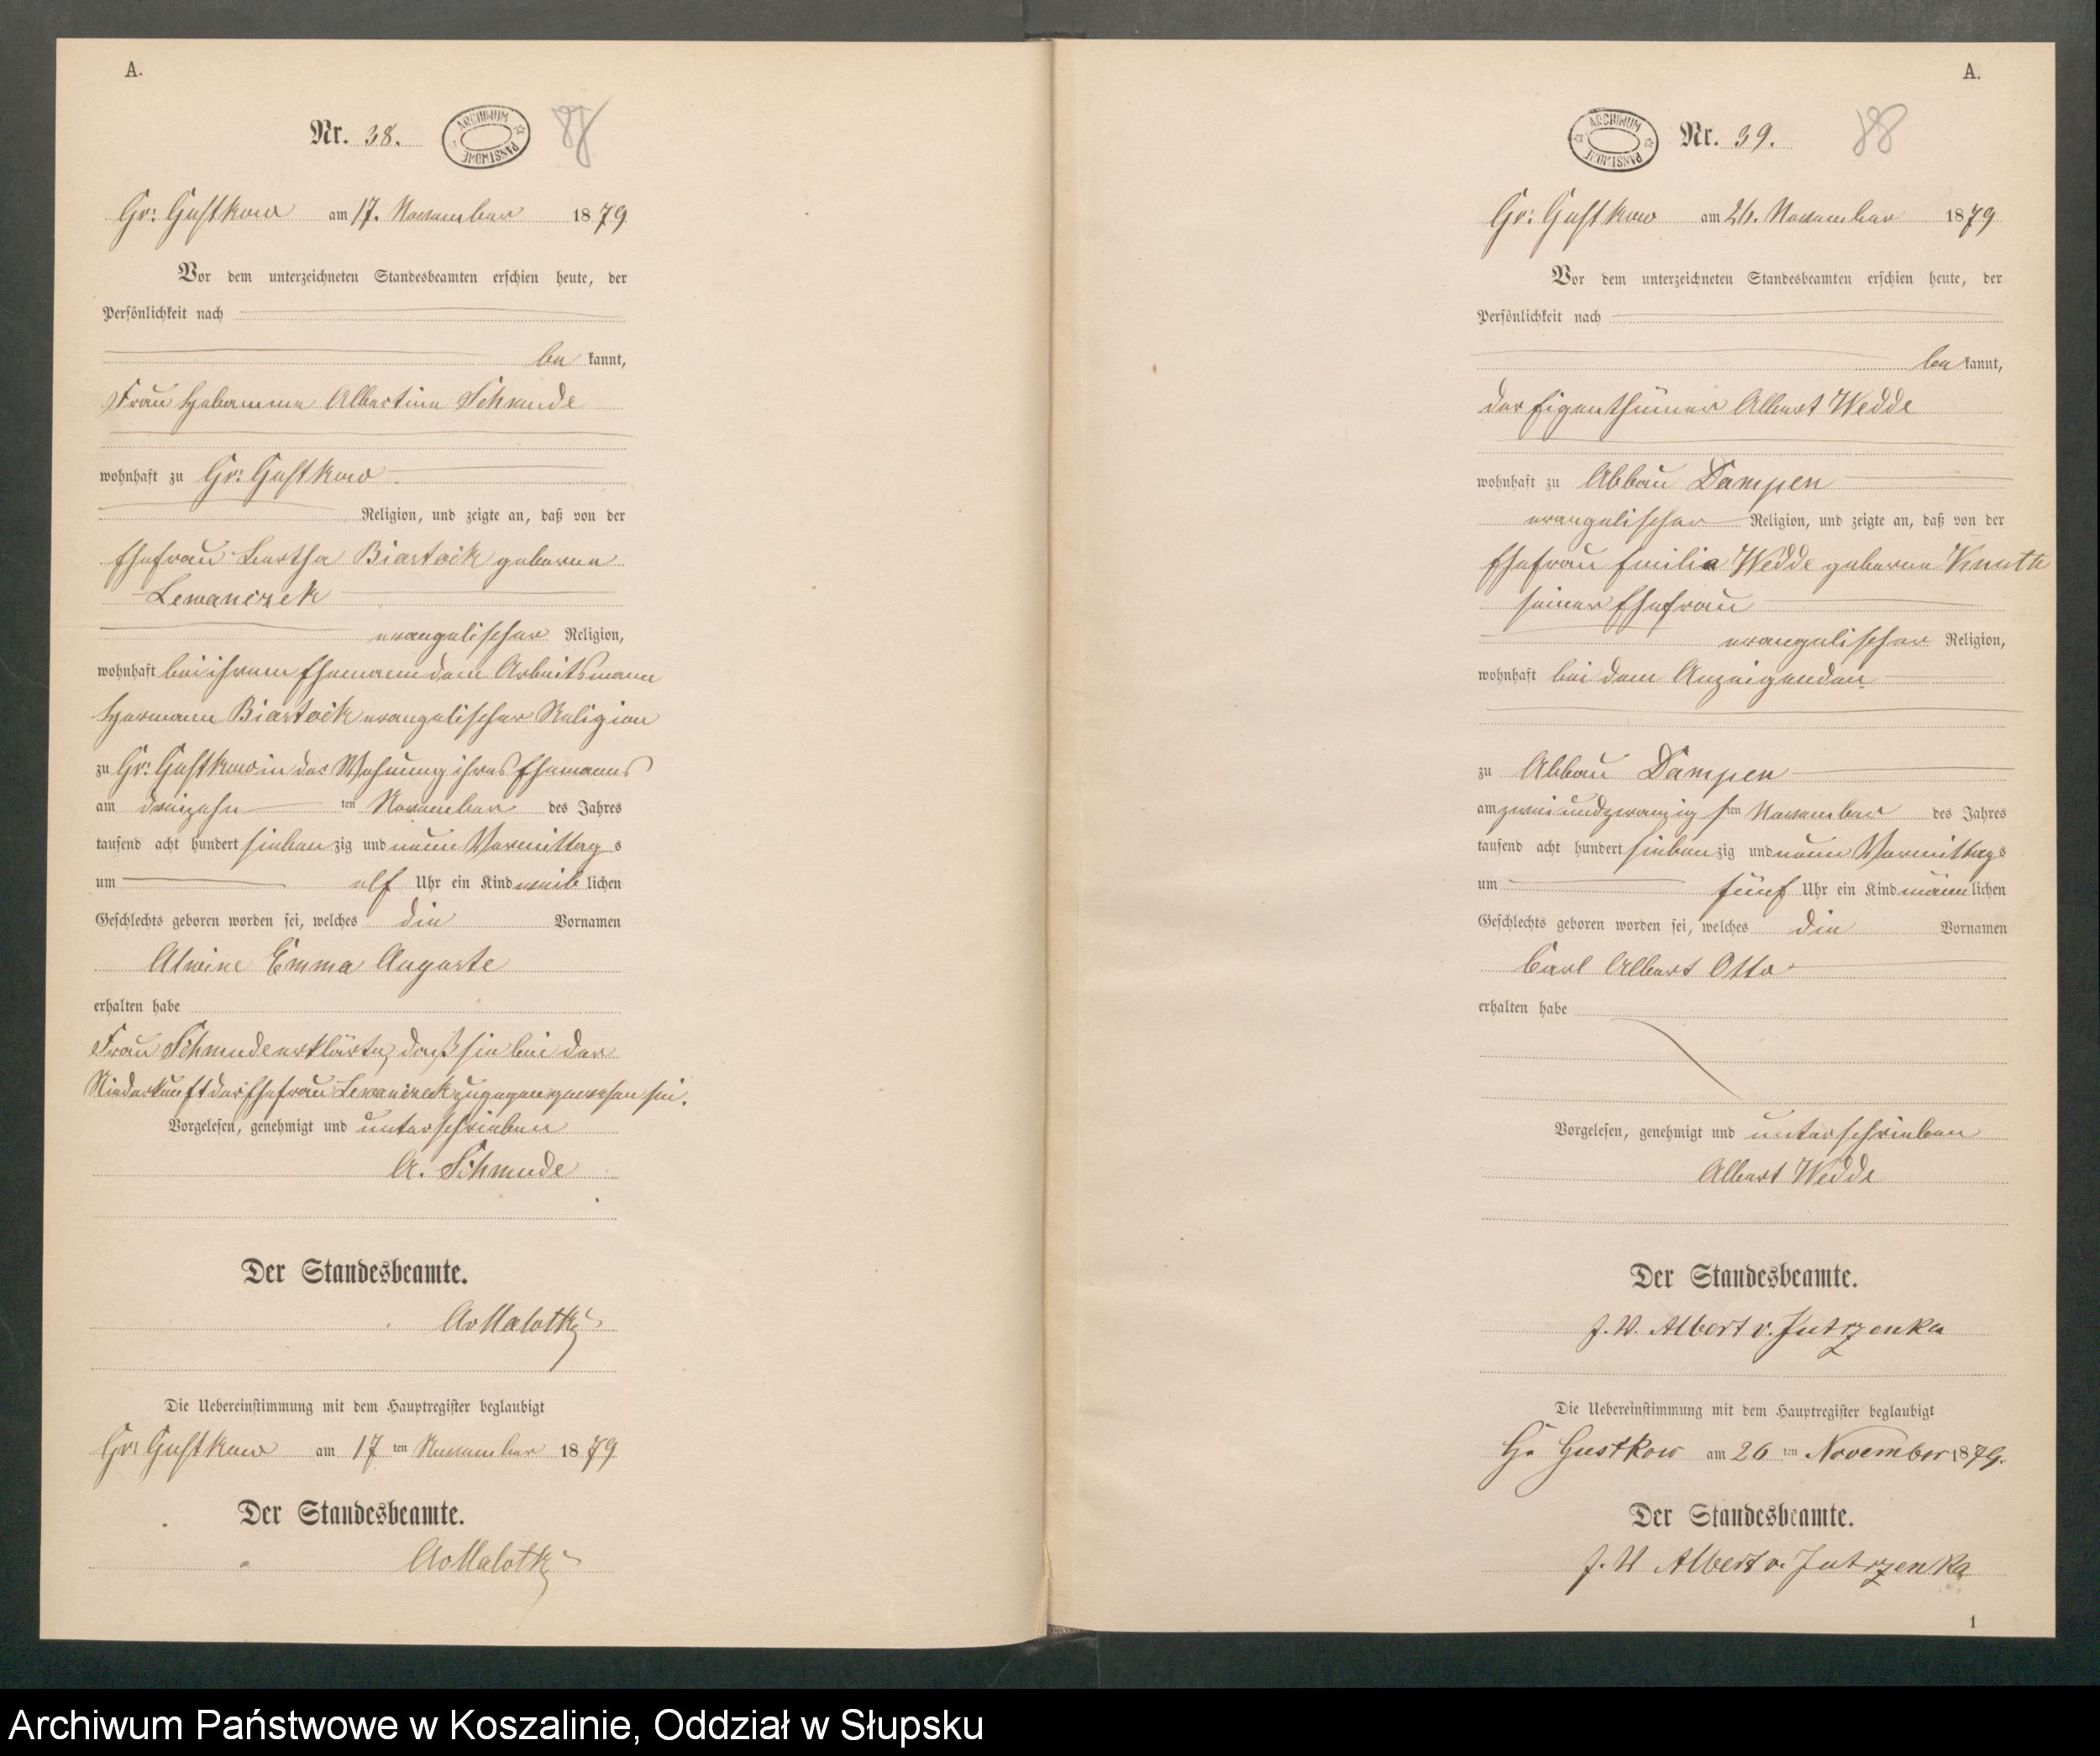 A.
Nr. 38.
ARCHIWUM PAŃSTWOWE
Gr: Gustkow am 17. November 1879
Vor dem unterzeichneten Standesbeamten erschien heute, der
Persönlichkeit nach
be kannt,
Frau Hebamme Albertine Schmude
wohnhaft zu Gr: Gustkow
Religion, und zeigte an, daß von der
Ehefrau Bertha Biastock geborene
Lewanczek
evangelischer Religion,
wohnhaft bei ihrem Ehemann dem Arbeitsmann
Hermann Biastock evangelischer Religion
zu Gr: Gustkow in der Wohnung ihres Ehemanns
am dreizehn ten November des Jahres
tausend acht hundert sieben zig und neun Vormittag s
um elf Uhr ein Kind weib lichen
Geschlechts geboren worden sei, welches die Vornamen
Alwine Emma Auguste
erhalten habe
Frau Schmude erklärte, daß sie bei der
Niederkunft der Ehefrau Lewanczek zugegen gewesen sei.
Vorgelesen, genehmigt und unterschrieben
A. Schmude
Der Standesbeamte.
AvMalotky
Die Uebereinstimmung mit dem Hauptregister beglaubigt
Gr: Gustkow am 17 ten November 1879
Der Standesbeamte.
AvMalotky
A.
ARCHIWUM PAŃSTWOWE
Nr. 39.
88
Gr: Gustkow am 26. November 1879
Vor dem unterzeichneten Standesbeamten erschien heute, der
Persönlichkeit nach
be kannt,
der Eigenthümer Albert Wedde
wohnhaft zu Abbau Dampen
evangelischer Religion, und zeigte an, daß von der
Ehefrau Emilie Wedde geborene Knuth
seiner Ehefrau
evangelischer Religion,
wohnhaft bei dem Anzeigenden
zu Abbau Dampen
am zwei und zwanzig sten November des Jahres
tausend acht hundert sieben zig und neun Vormittags
um fünf Uhr ein Kind männ lichen
Geschlechts geboren worden sei, welches die Vornamen
Carl Albert Otto
erhalten habe
Vorgelesen, genehmigt und unterschrieben
Albert Wedde
Der Standesbeamte.
J. V. Albert v. Jutrzenka
Die Uebereinstimmung mit dem Hauptregister beglaubigt
Gr Gustkow am 26 ten November 1879.
Der Standesbeamte.
J. V Albert v. Jutrzenka
1
Archiwum Państwowe w Koszalinie, Oddział w Słupsku